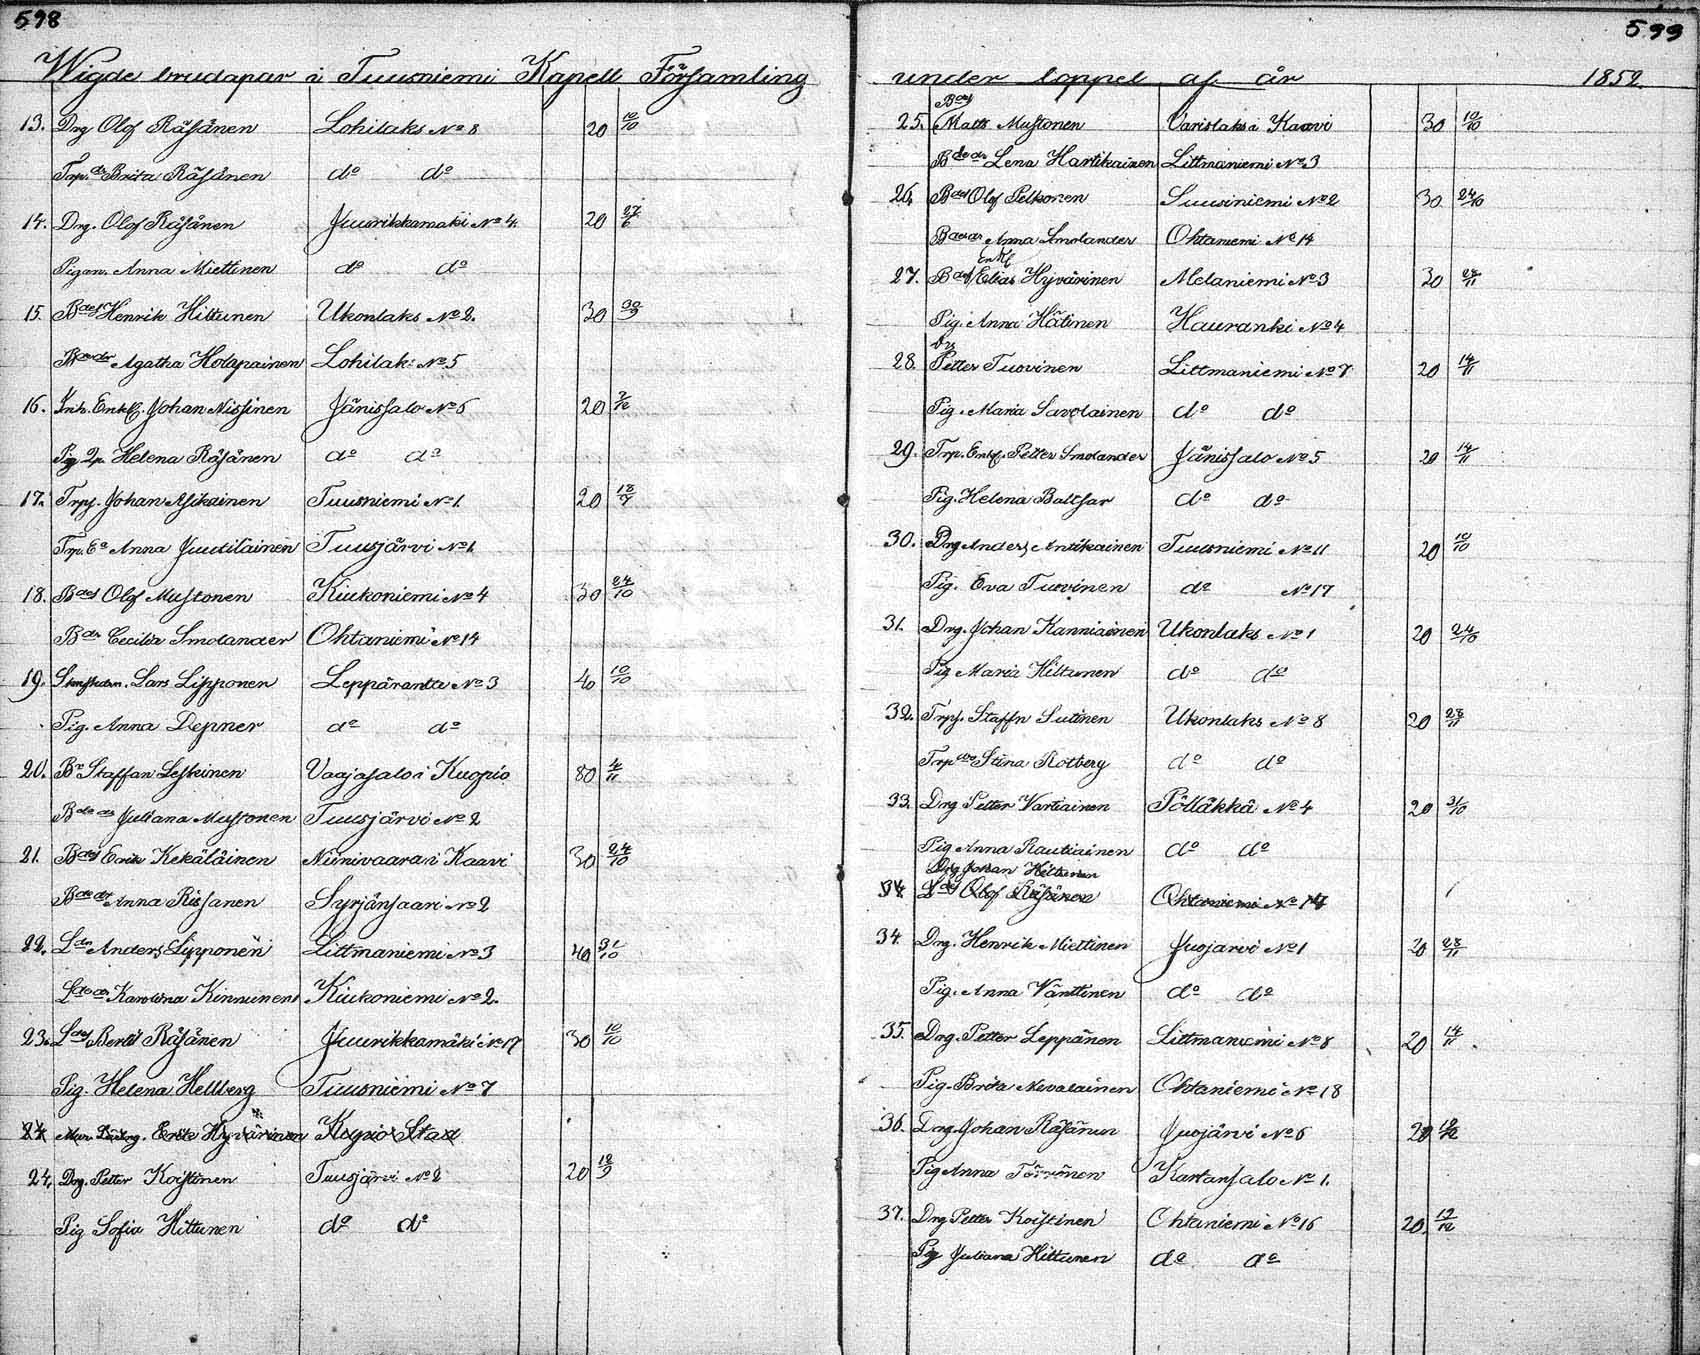 598
Wigde brudapar i Tuusniemi Kapell Församling
13. Drg Olof Räsänen Lohilaks No 8 20 10/10
Trp. dr Brita Räsänen do do
14. Drg. Olof Räsänen Juurikkamäki No 4. 20 27/6
Pigan. Anna Miettinen do do
15. Bds Henrik Hiltunen Ukonlaks No 2. 30 30/9
Agatha Holapainen Lohilak: No 5
16. Inh. Enkl. Johan Nissinen Jänissalo No 6 20
Pig Helena Räsänen do do
17. Trp. Johan Asikainen Tuusniemi No 1. 20 18/7
Trp. Ea Anna Juutilainen Tuusjärvi No 1.
18. Bds Olof Mustonen Kiukoniemi No 4 30 24/10
Bdr Cecilia Smolander Ohtaniemi No 14
19. Lars Lipponen Leppäranta No 3 40 10/10
Pig. Anna Depner do do
20. Br Staffan Leskinen Vaajasalo i Kuopio 80 4/11
Bde dr Juliana Mustonen Tuusjärvi No 2
21. Bds Erik Kekäläinen Niinivaara i Kaavi 30 24/10
Bde dr Anna Rissanen Syrjänsaari No 2
22. Ldn Anders Lipponen Littmaniemi No 3 40 31/10
Lde dr Karolina Kinnunen Kiukoniemi No 2.
23. Lds Bertil Räsänen Juurikkamäki No 17 30 10/10
Pig. Helena Hellberg Tuusniemi No 7
24 Erik Hyvärinen Kupio Stad
24. Drg. Petter Koistinen Tuusjärvi No 2 20 12/9
Pig Sofia Hiltunen do do
599
under loppet af år 1852.
Bds
25. Matts Mustonen Varislaks i Kaavi 30 10/10
Bde dr Lena Hartikainen Littmaniemi No 3
26. Bds Olof Pelkonen Suusiniemi No 2 30 24/10
Anna Smolander Ohtaniemi No 14
Enkl
27. Bds Elias Hyvärinen Melaniemi No 3 30
Pig. Anna Hätinen Hauranki No 4
28. Petter Tuovinen Littmaniemi No 7 20 14/11
Pig. Maria Savolainen do do
29. Trp. Enkl. Petter Smolander Jänissalo No 5 20 14/11
Pig. Helena Baltsar do do
30. Drg Anders Antikainen Tuusniemi No 11 20 10/10
Pig. Eva Tuovinen do No 17
31. Drg. Johan Kanniainen Ukonlaks No 1 20 24/10
Pig Maria Hiltunen do do
32. Trp. Staffn Sutinen Ukonlaks No 8 20 28/11
Trp dr Stina Rotberg do do
33. Drg Petter Vartiainen Pölläkkä No 4 20 31/10
Pig Anna Rautiainen do do
Drg Johan Hiltunen
34. Lds Olof Räsänen Ohtaniemi No 14
34. Drg. Henrik Miettinen Juojärvi No 1 20 28/11
Pig. Anna Vänttinen do do
35. Drg. Petter Leppänen Littmaniemi No 8 20 14/11
Pig. Brita Nevalainen Ohtaniemi No 18
36. Drg. Johan Räsänen Juojärvi No 6 20
Pig Anna Törrönen Kartansalo No 1.
37. Drg Petter Koistinen Ohtaniemi No 16 20 19/12
Pig Juliana Hiltunen do do